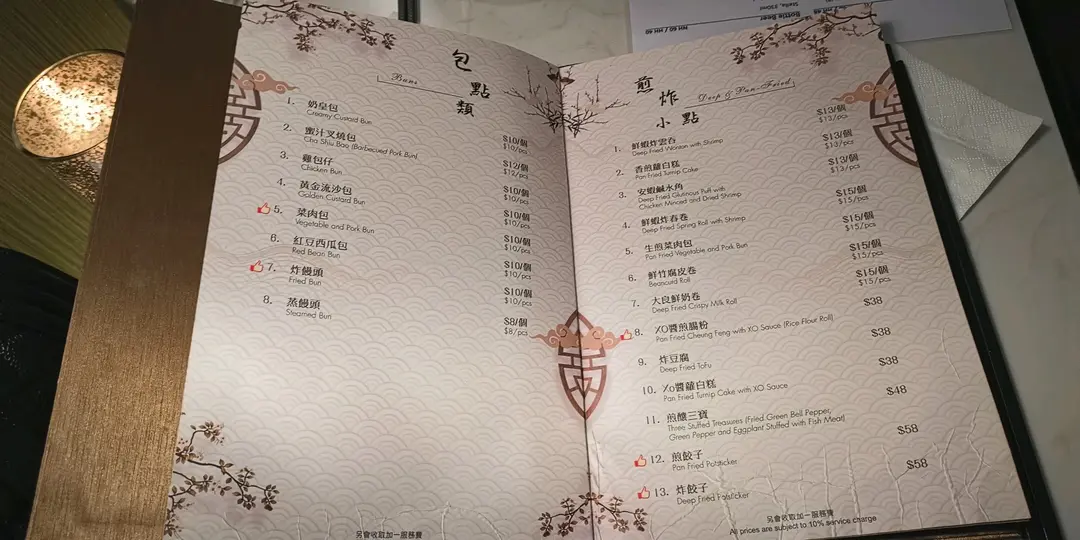 Bottle Beer
Stella, 330ml
包點類
Buns
1. 奶皇包 $10/個
Creamy Custard Bun $10/pcs
2. 蜜汁叉燒包 $12/個
Cha Shiu Bao (Barbecued Pork Bun) $12/pcs
3. 雞包仔 $10/個
Chicken Bun $10/pcs
4. 黃金流沙包 $10/個
Golden Custard Bun $10/pcs
5. 菜肉包 $10/個
Vegetable and Pork Bun $10/pcs
6. 紅豆西瓜包 $10/個
Red Bean Bun $10/pcs
7. 炸饅頭 $10/個
Fried Bun $10/pcs
8. 蒸饅頭 $8/個
Steamed Bun $8/pcs
另會收取加一服務費
煎炸小點
Deep & Pan-Fried
1. 鮮蝦炸雲吞 $13/個
Deep Fried Wonton with Shrimp $13/pcs
2. 香煎蘿白糕 $13/個
Pan Fried Turnip Cake $13/pcs
3. 安蝦鹹水角 $13/個
Deep Fried Glutinous Puff with $13/pcs
Chicken Minced and Dried Shrimp
4. 鮮蝦炸春卷 $15/個
Deep Fried Spring Roll with Shrimp $15/pcs
5. 生煎菜肉包 $15/個
Pan Fried Vegetable and Pork Bun $15/pcs
6. 鮮竹腐皮卷 $15/個
Beancurd Roll $15/pcs
7. 大良鮮奶卷 $15/個
Deep Fried Crispy Milk Roll $15/pcs
8. XO醬煎腸粉 $38
Pan Fried Cheung Feng with XO Sauce (Rice Flour Roll)
9. 炸豆腐 $38
Deep Fried ToFu
10. Xo醬蘿白糕 $38
Pan Fried Turnip Cake with XO Sauce
11. 煎釀三寶 $48
Three Stuffed Treasures (Fried Green Bell Pepper,
Green Pepper and Eggplant Stuffed with Fish Meat)
12. 煎餃子 $58
Pan Fried Potsticker
13. 炸餃子 $58
Deep Fried Potsticker
另會收取加一服務費
All prices are subject to 10% service charge